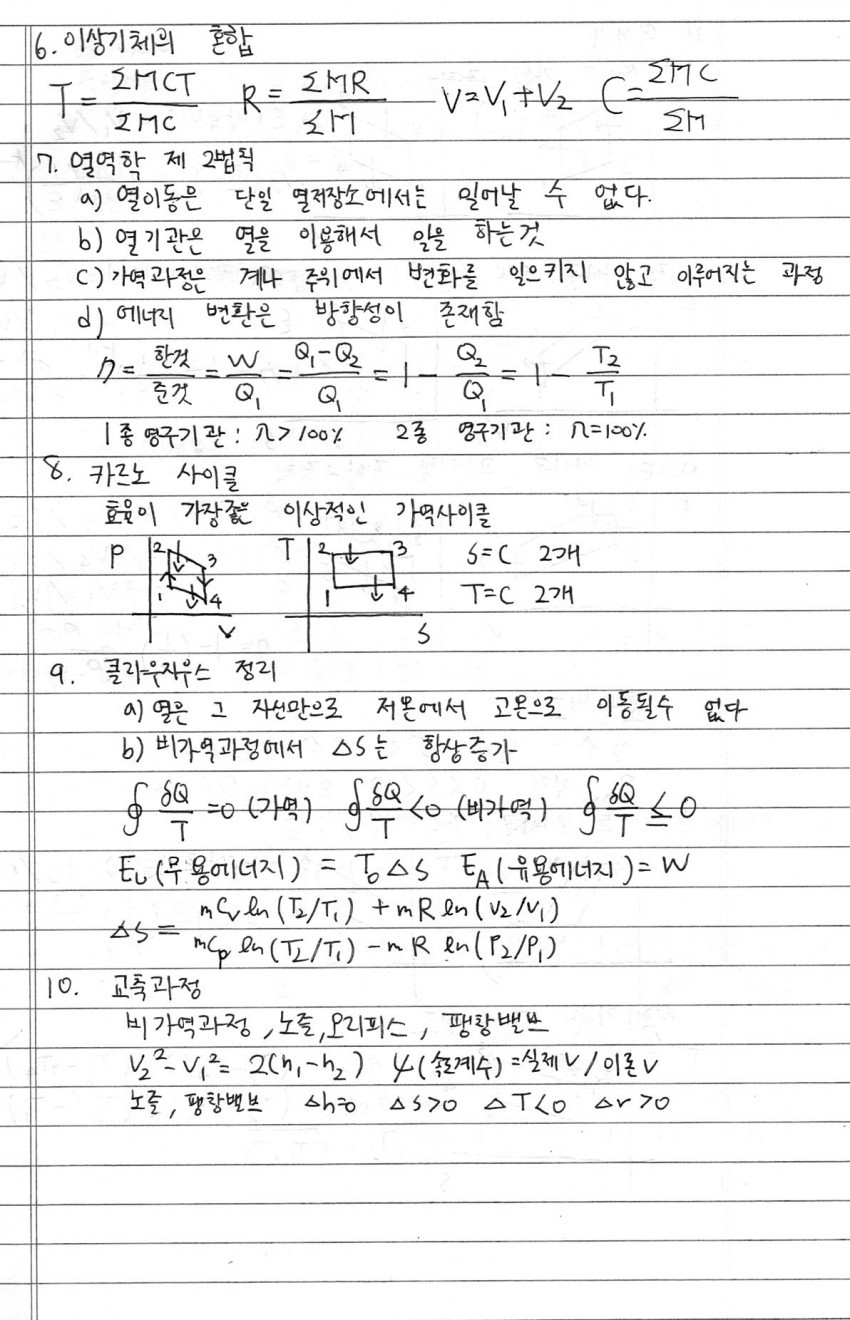 6. 이상기체의 혼합
T = ΣMCT / ΣMC R = ΣMR / ΣM V = V₁ + V₂ C = ΣMC / ΣM
7. 열역학 제 2법칙
a) 열이동은 단일 열저장소에서는 일어날 수 없다.
b) 열기관은 열을 이용해서 일을 하는것
c) 가역과정은 계나 주위에서 변화를 일으키지 않고 이루어지는 과정
d) 에너지 변환은 방향성이 존재함
η = 한것 / 준것 = W / Q₁ = Q₁-Q₂ / Q₁ = 1 - Q₂ / Q₁ = 1 - T₂ / T₁
1종 영구기관 : η > 100% 2종 영구기관 : η = 100%.
8. 카르노 사이클
효율이 가장좋은 이상적인 가역사이클
P 2 3 1 4 V T 2 3 1 4 S S=C 2개
T=C 2개
9. 클라우지우스 정리
a) 열은 그 자신만으로 저온에서 고온으로 이동될수 없다
b) 비가역과정에서 ΔS는 항상증가
∮ δQ / T = 0 (가역) ∮ δQ / T < 0 (비가역) ∮ δQ / T ≤ 0
E_U (무용에너지) = T₀ΔS E_A (유용에너지) = W
ΔS = mCv ln (T₂/T₁) + mR ln (V₂/V₁)
mCp ln (T₂/T₁) - mR ln (P₂/P₁)
10. 교축과정
비가역과정, 노즐, 오리피스, 팽창밸브
V₂² - V₁² = 2(h₁-h₂) ψ (속도계수) = 실제 V / 이론 V
노즐, 팽창밸브 Δh=0 ΔS>0 ΔT<0 Δv>0